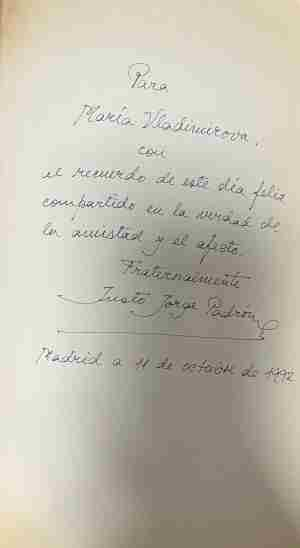 Para
María Vladimirova,
con
el recuerdo de este día feliz
compartido en la verdad de
la amistad y el afecto.
Fraternalmente
Justo Jorge Padrón
Madrid a 11 de octubre de 1992